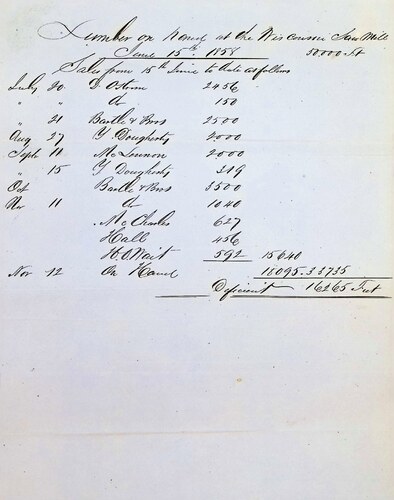 Lumber on hand at the Wisconsin Saw Mill
June 15th 1858 50.000 Ft
Sales from 15th June to date as follows
July 20 D Ostrom 2456
" " do 150
" 21 Bartle & Bros 2500
Aug 27 Y Dougherty 2000
Sept 11 McLennon 2000
" 15 Y Dougherty 319
Oct Bartle & Bros 3500
Nov 11 do 1040
McCharles 627
Hall 456
H.O. Wait 592 15640
Nov 12 On Hand 18095. 33735
Deficient 16265 Feet